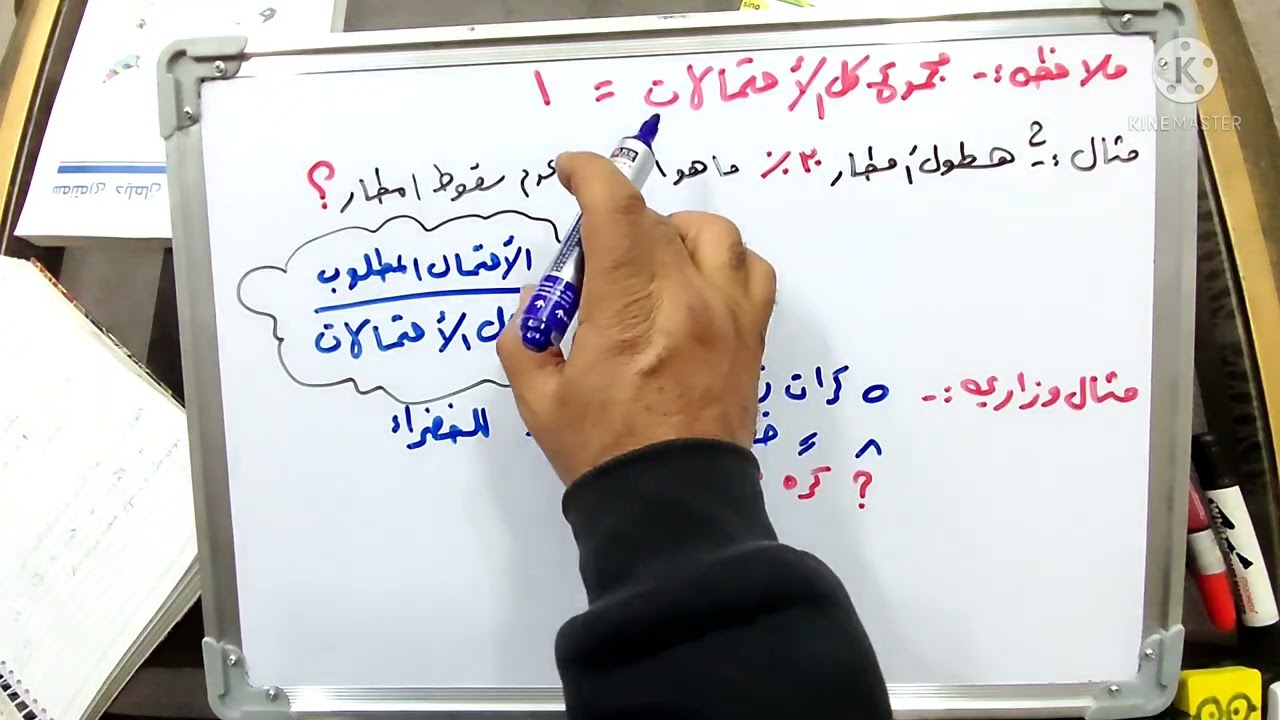 ملاحظه :- مجموع كل الأحتمالات = ١
مثال 2 :- هطول أمطار ٣٠٪ ما هو عدم سقوط امطار ؟
الأحتمال المطلوب
الأحتمالات
مثال وزاري :- ٥ كرات
٨ = للخضراء
؟ كره
KINEMASTER